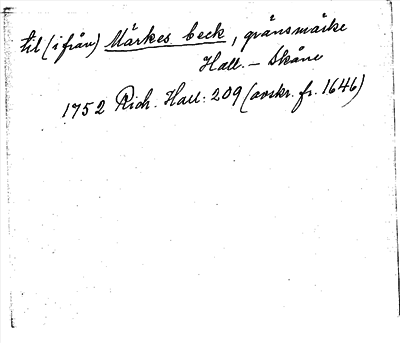 til (ifrån) Märkes beck, gränsmärke
Hall. - Skåne
1752 Rich. Hall: 209 (avskr. fr. 1646)